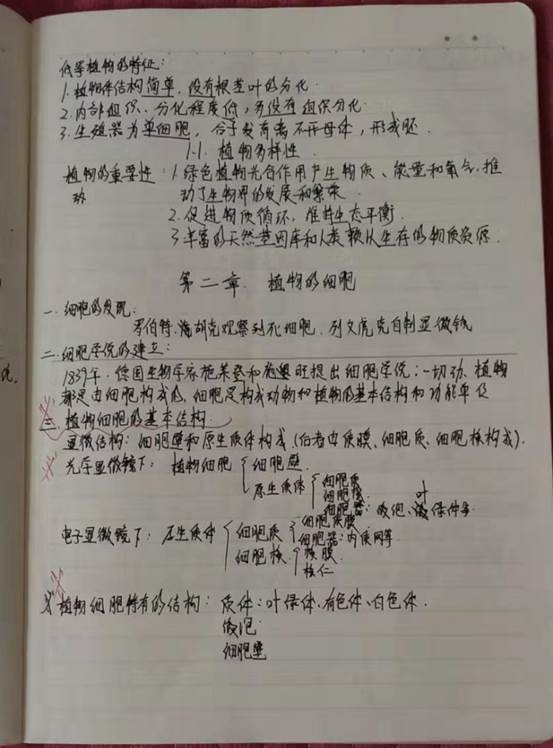 低等植物的特征:
1.植物体结构简单,没有根茎叶的分化.
2.内部组织、分化程度低,多没有组织分化.
3.生殖器为单细胞,合子发育离不开母体,形成胚.
1.1. 植物多样性.
植物的重要性:1.绿色植物光合作用产生物质、能量和氧气,推
动了生物界的发展和繁荣.
2.促进物质循环,维持生态平衡.
3.丰富的天然基因库和人类赖以生存的物质资源.
第二章. 植物的细胞
一.细胞的发现:
罗伯特.海胡克观察到死细胞.列文虎克自制显微镜
二.细胞学说的建立:
1839年.德国生物学家施莱登和施旺提出细胞学说:一切动、植物
都是由细胞构成的,细胞是构成动物和植物的基本结构和功能单位
三.植物细胞的基本结构.
显微结构:细胞壁和原生质体构成(后者由质膜、细胞质、细胞核构成).
光学显微镜下: 植物细胞 { 细胞壁
原生质体 { 细胞质
细胞核
细胞器:液泡、叶绿体等
电子显微镜下:原生质体 { 细胞质 { 细胞质膜
细胞器:内质网等
细胞核 { 核膜
核仁
植物细胞特有的结构: 质体:叶绿体、有色体、白色体.
液泡
细胞壁